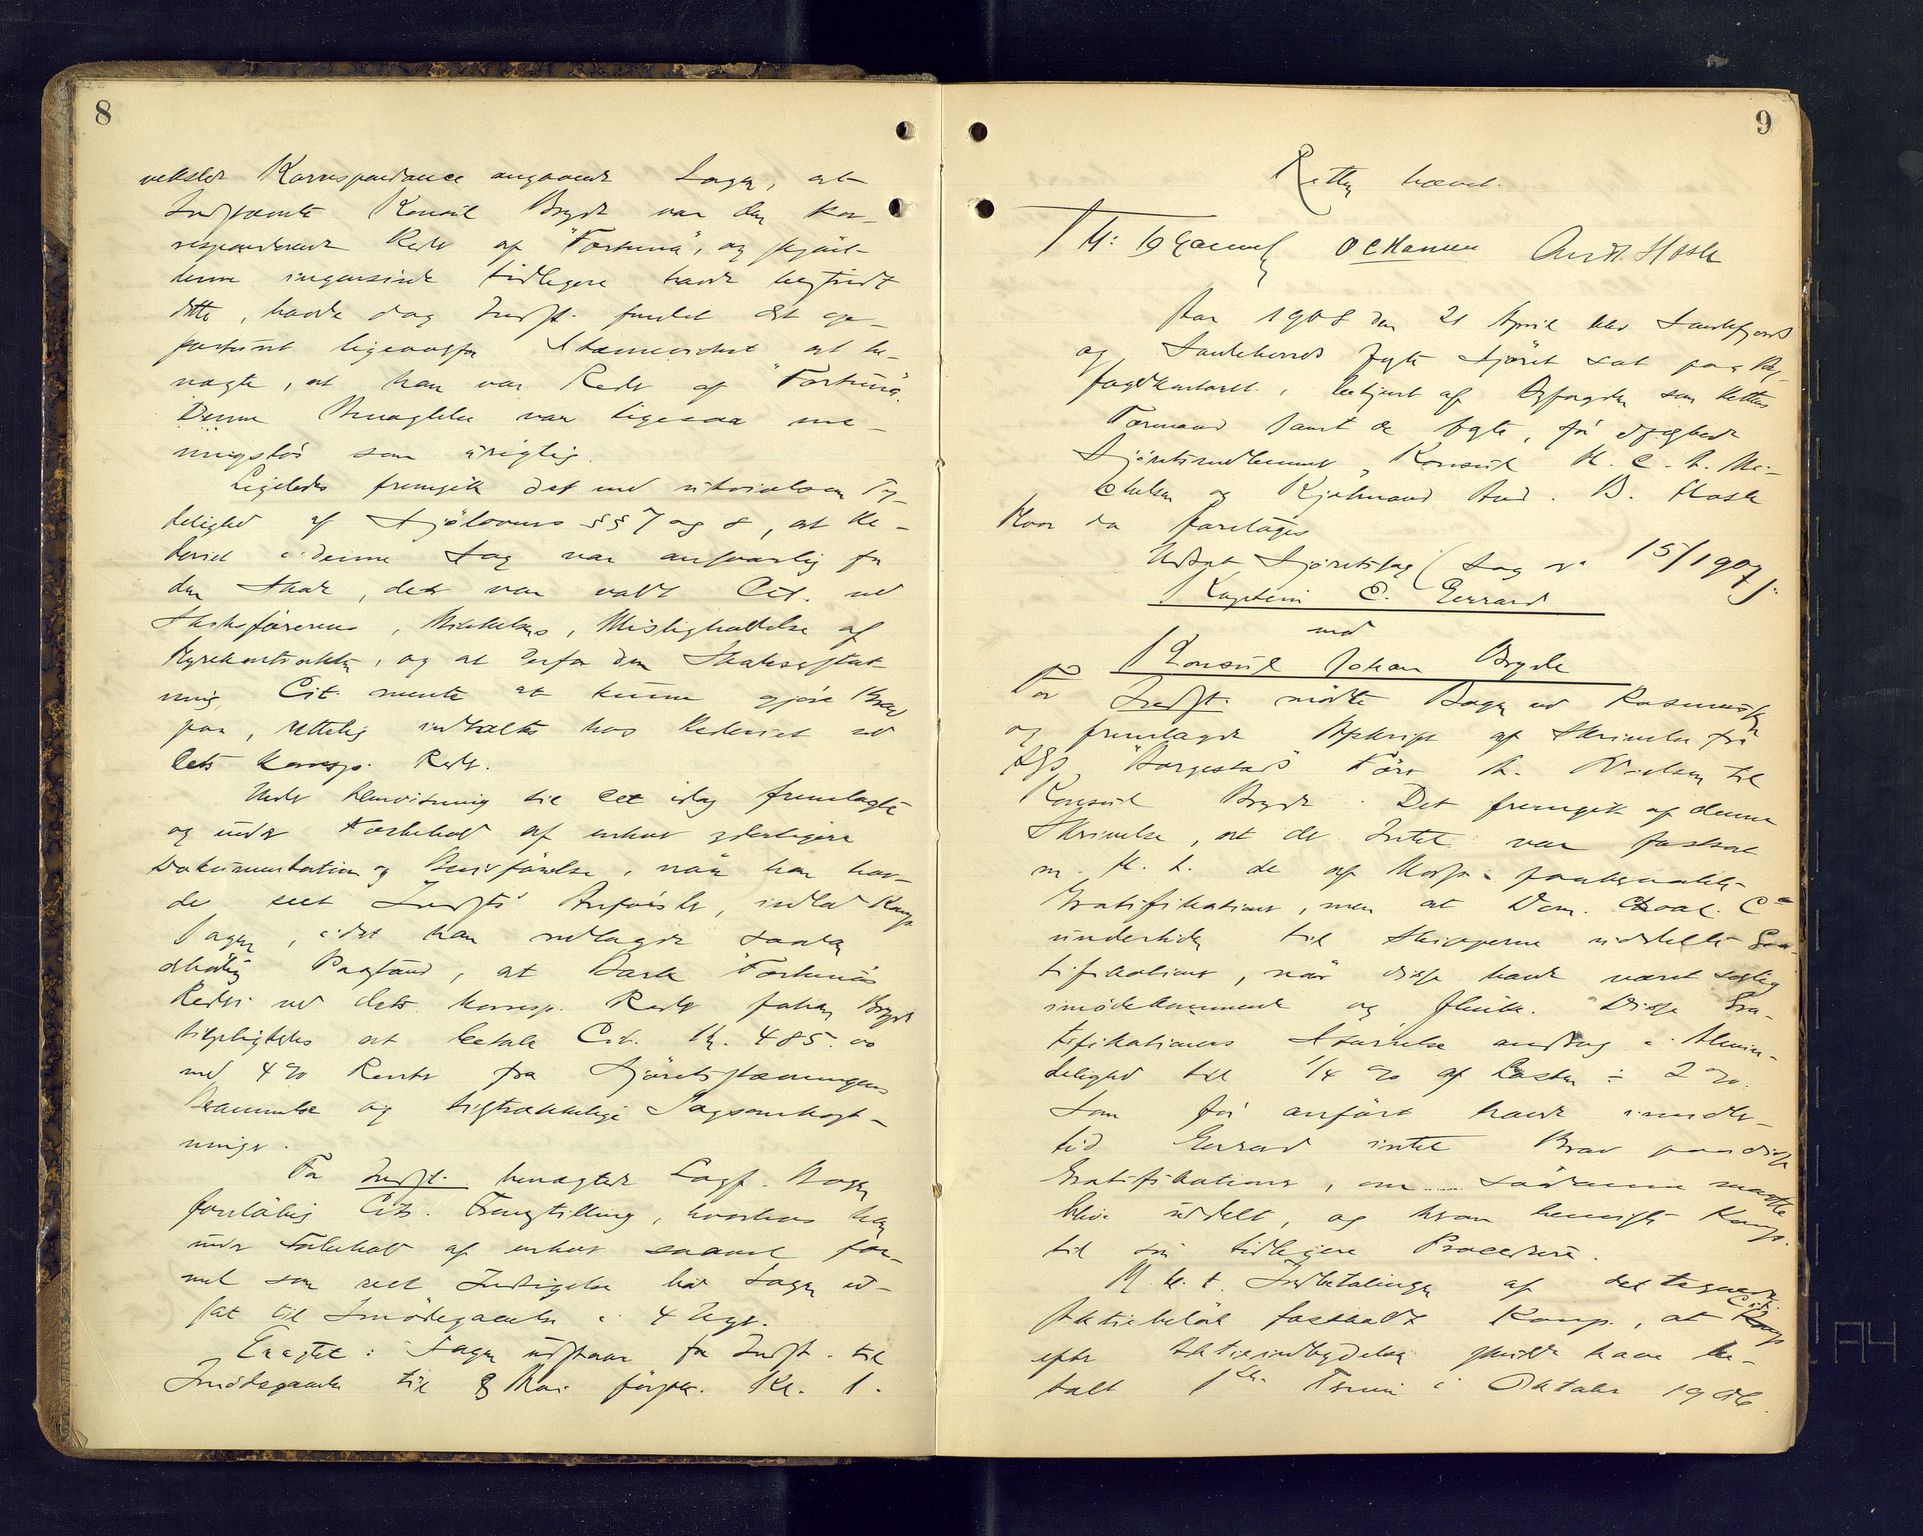 8
vekslet Korrespondance angaaende Sagen, at
Indstævnte Konsul Bryde var den kor-
responderende Reder af "Fortuna", og skjönt
denne ingensinde tidligere havde bestridt
dette, havde dog Indst. fundet det op-
portunt ligeoverfor Stævnevidnet at be-
nægte, at han var Reder af "Fortuna".
Denne Benægtelse var ligesaa me-
ningslös som urigtig.
Ligeledes fremgik det med utvivlsom Ty-
delighed af Sjölovens §§ 7 og 8, at Re-
deriet i denne Sag var ansvarlig for
den Skade, der var voldt Cit. ved
Skibsförerens, Mikkelsens, Misligholdelse af
Hyrekontrakten, og at derfor den Skadeserstat
ning Cit. mente at kunne gjöre Krav
paa, rettelig indtaltes hos Rederiet ved
dets korresp. Reder.
Under Henvisning til det idag fremlagte
og under Forbehold af enhver yderligere
Dokumentation og Bevisförelse, naar han hav-
de seet Indst's Anförsler, indlod Komp.
Sagen, idet han nedlagde saadan
Paastand, at Bark "Fortuna's
Rederi ved dets korresp. Reder Johan Bryde
tilpligtedes at betale Cit. Kr. 485.00
med 4 % Renter fra Sjöretsstævningens
Berammelse og tilstrækkelige Sagsomkost-
ninger.
For Indst. benægtede Sagf. Bogen
foreløbig Cits. Fremstilling, hvorhos han
under Forbehold af enhver saavel for-
mel som reel Indsigelse bad Sagen ud-
sat til Imödegaaelse i 4 Uger.
Eragtet: Sagen udstaar for Indst. til
Imödegaaelse til 8 Mai förstk. Kl. 1.
9
Retten hævet.
O C Hansen Andr. Hosle
Aar 1908 den 21 April blev Sandefjords
og Sandeherreds faste Sjöret sat paa By-
fogdkontoret, betjent af Byfogden som Rettens
Formand samt de faste, för edfæstede
Sjöretsmedlemmer, Konsul H. C. A. Mi-
chelsen og Kjöbmand And. B. Hosle
Hvor da foretoges
Udsat Sjöretssag (Sag nr 15/1907):
Kaptein E. Gerrard
mod
Konsul Johan Bryde
For Indst. mödte Bogen ved Rasmussen
og fremlagde Afskrift af Skrivelse fra
D/S "Borgestads" Förer A. Nielsen til
Konsul Bryde. Det fremgik af denne
Skrivelse, at der Intet var fastsat
m. H. t. de af Modp. paaberaabte
Gratifikationer, men at Dom. Coal. Co
undertiden til Skipperne uddelte Gra-
tifikationer, naar disse havde været særlig
imödekommende og flinke. Disse Gra-
tifikationers Störrelse androg i Almin-
delighed til 1/4 % af Lasten ÷ 2 %.
Som för anfört havde imidler-
tid Gerrard intet Krav paa disse
Gratifikationer, om saadanne maatte
blive uddelt, og hvor henviste Komp.
til sin tidligere Procedure.
M. H. t. Indbetalingen af det tegnede
Aktiebelöb fastholdt Komp., at Cit.
efter Aktieindbydelsen skulde have be-
talt 1ste Termin i Oktober 1906.